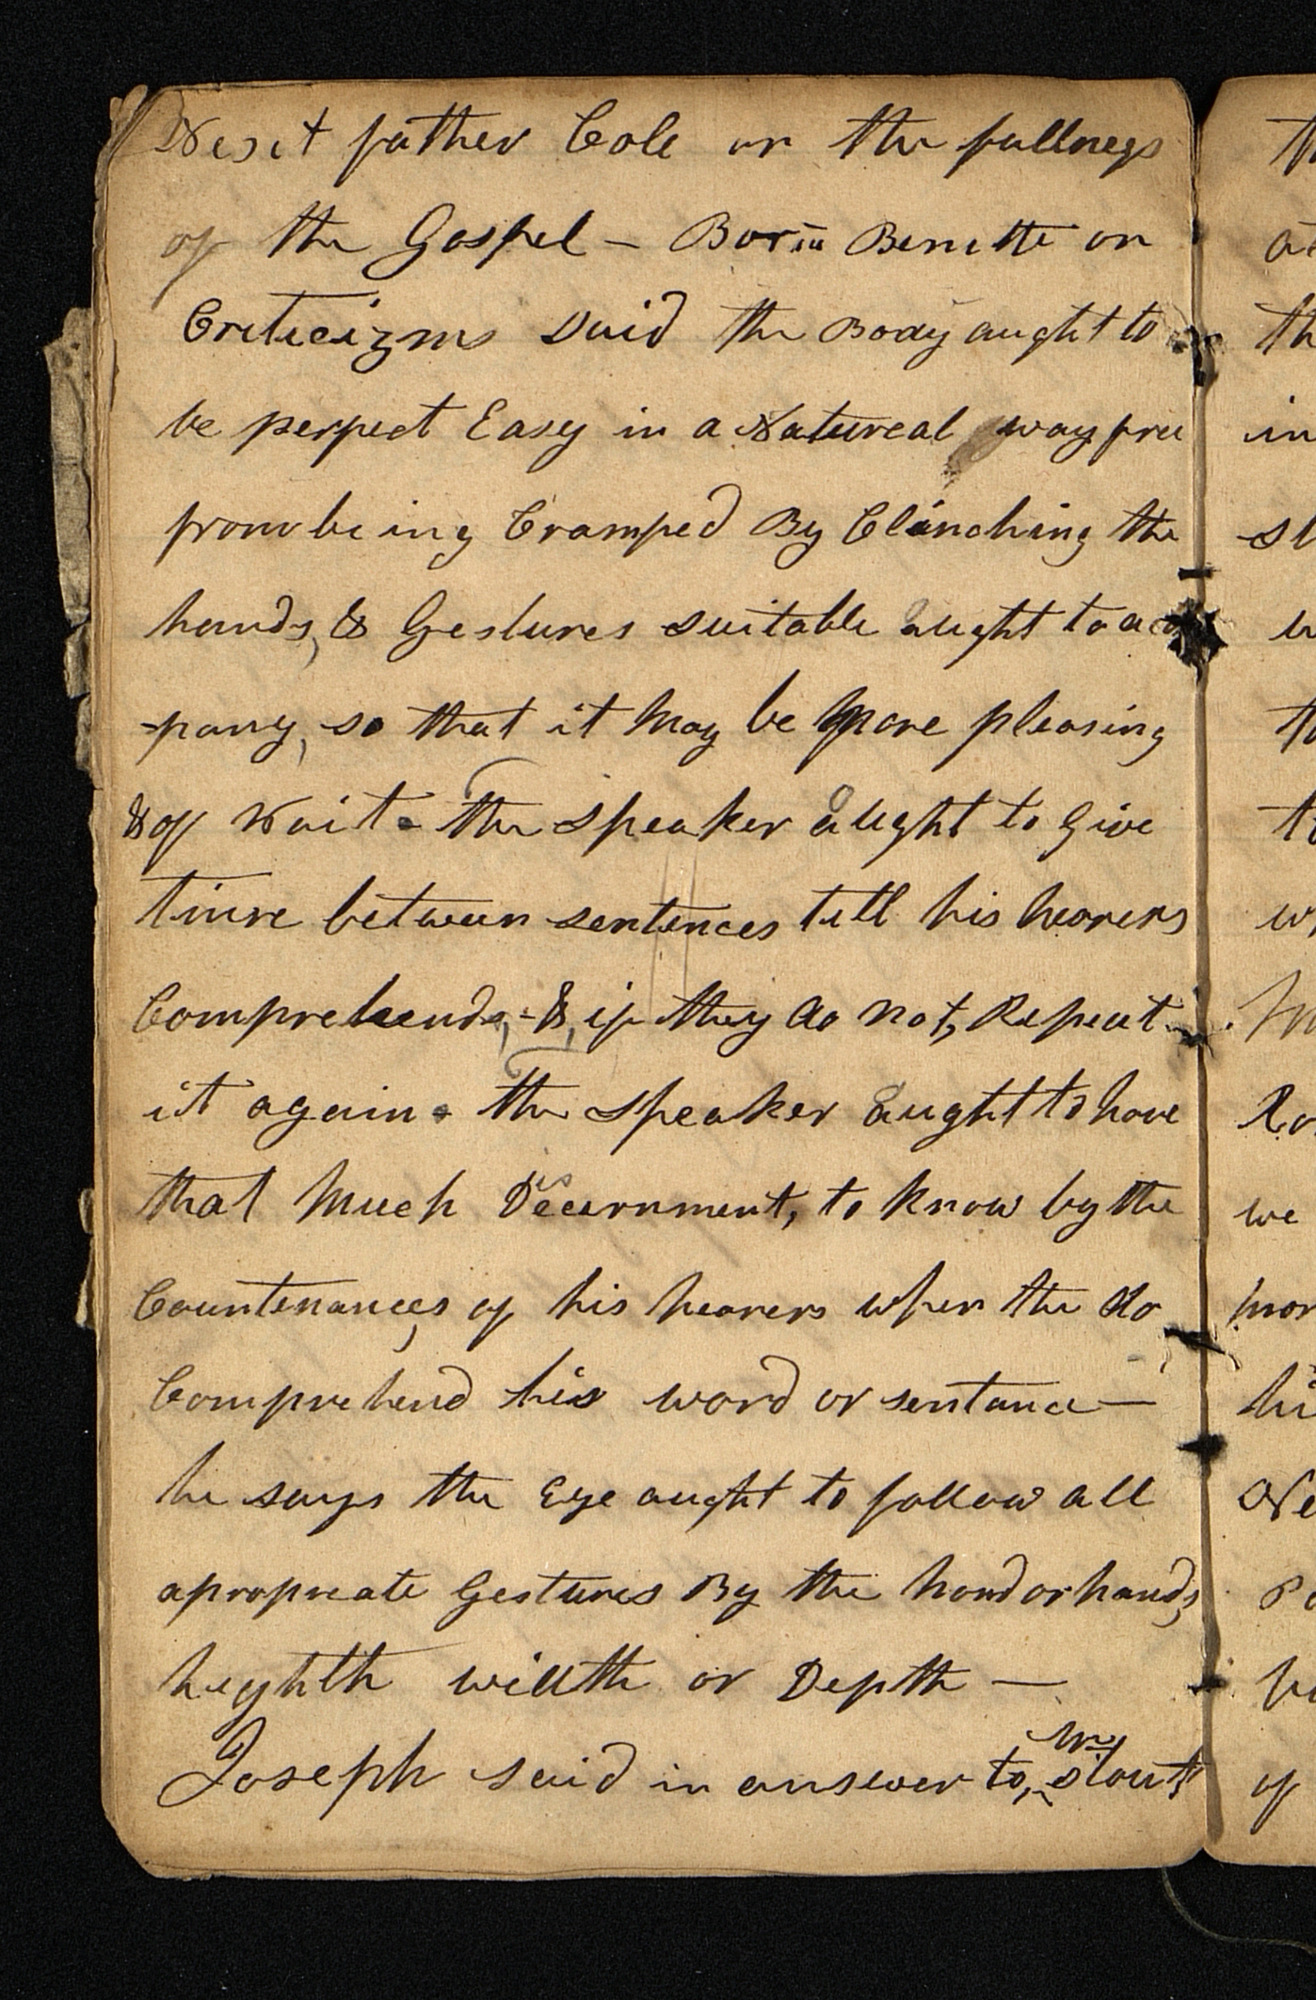 Next father Cole on the fullness
of the Gospel – Benette on
Criticizms said the Body aught to
be perfect Easy in a Natureal way free
from being Cramped By Clinching the
hands, & Gestures suitable aught to acom
-pany, so that it may be more pleasing
& of Wait. the speaker aught to Give
time between sentences till his hearers
Comprehends, - &, if they do not, Repeat
it again. the speaker aught to have
that Much Decernment, to know by the
Countenances, of his hearers when the do
Comprehend his word or sentance —
he says the Eye aught to follow all
apropreate Gestures By the hand or hands,
heyhth willth or Depth —
Joseph said in answer to, Mr stout